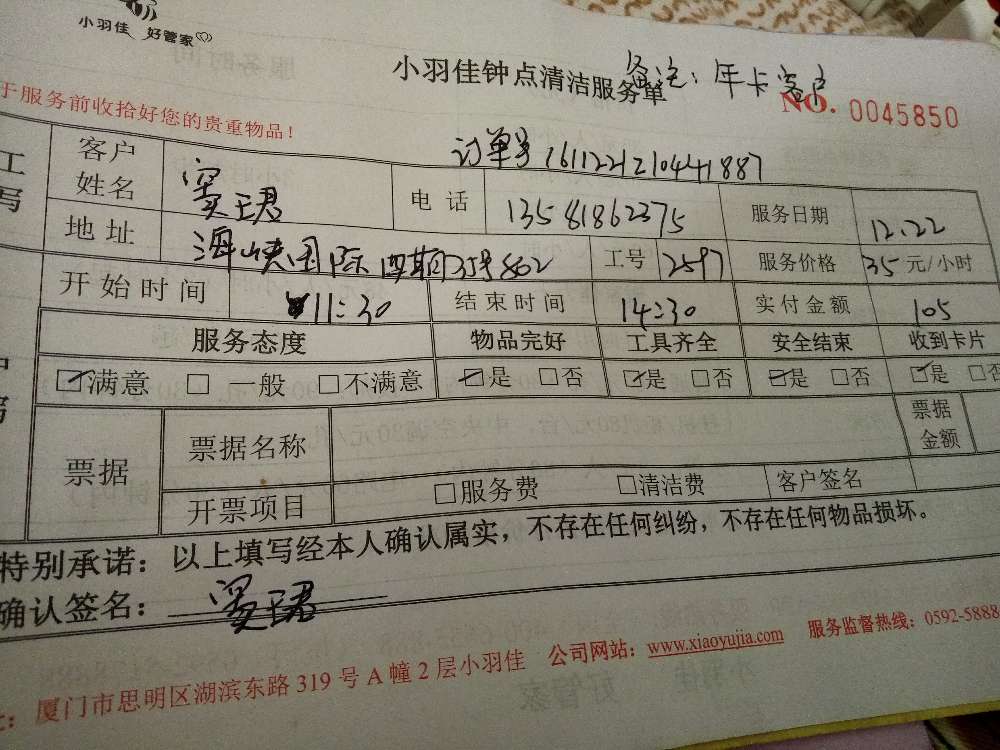 小羽佳 好管家
小羽佳钟点清洁服务单
备注：年卡客户
NO. 0045850
于服务前收拾好您的贵重物品！
订单号 161122121044887
工
写
客户姓名 窦珺 电话 13581862375 服务日期 12.22
地址 海峡国际四期35号802 工号 2597 服务价格 35元/小时
开始时间 11:30 结束时间 14:30 实付金额 105
服务态度 物品完好 工具齐全 安全结束 收到卡片
☑满意 □一般 □不满意 ☑是 □否 ☑是 □否 ☑是 □否 ☑是 □否
票据 票据名称 票据金额
开票项目 □服务费 □清洁费 客户签名
特别承诺：以上填写经本人确认属实，不存在任何纠纷，不存在任何物品损坏。
确认签名：窦珺
厦门市思明区湖滨东路319号A幢2层小羽佳 公司网站：www.xiaoyujia.com 服务监督热线：0592-5888